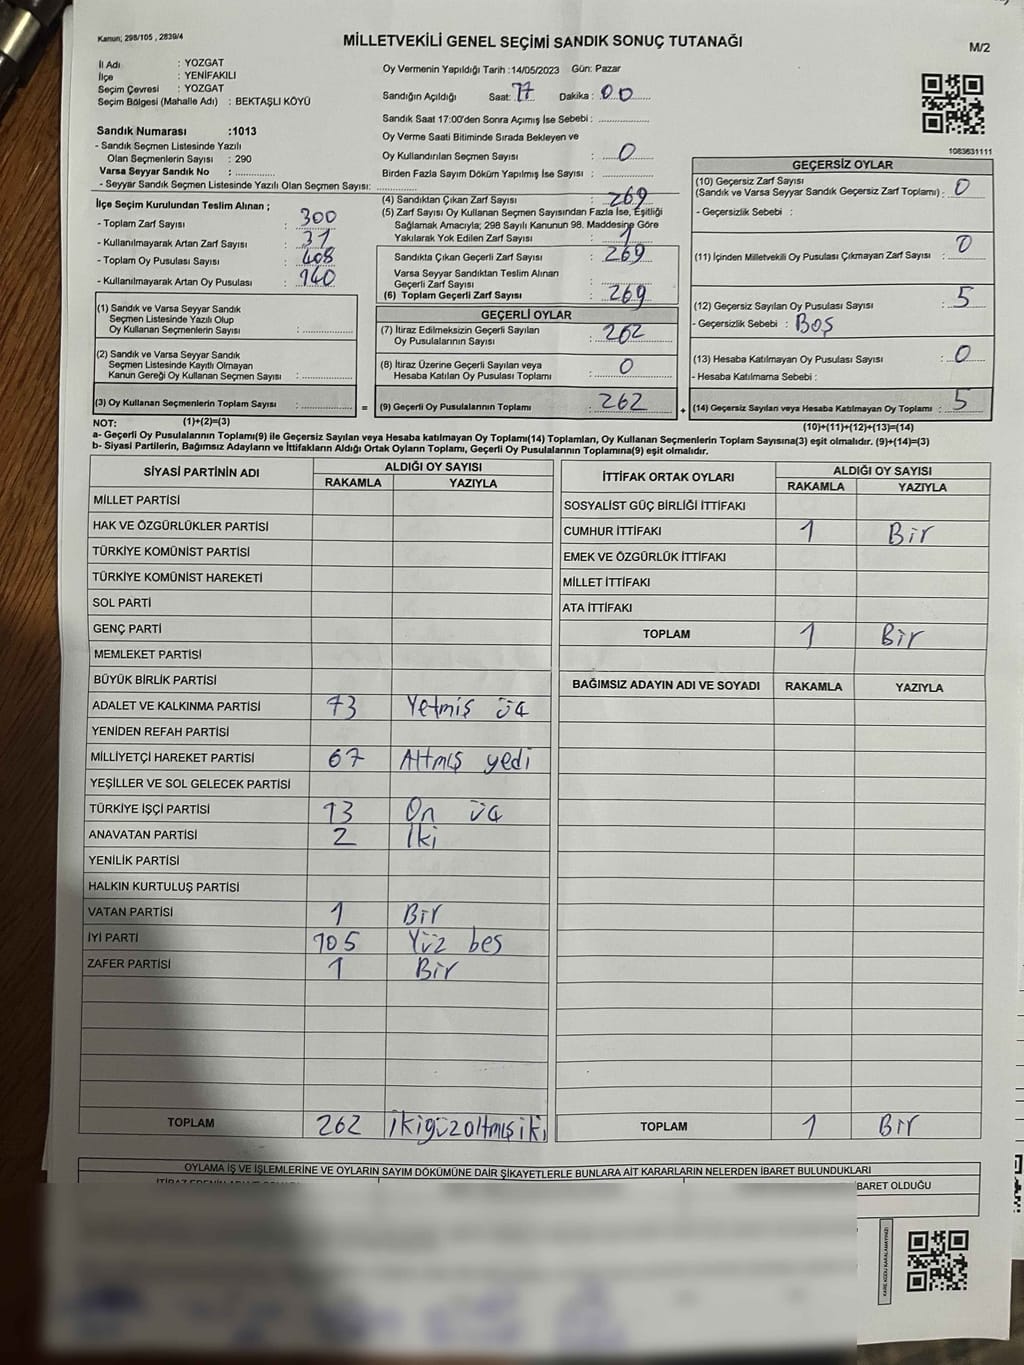 Kanun; 298/105 , 2839/4
MİLLETVEKİLİ GENEL SEÇİMİ SANDIK SONUÇ TUTANAĞI
M/2
İl Adı : YOZGAT
İlçe : YENİFAKILI
Seçim Çevresi : YOZGAT
Seçim Bölgesi (Mahalle Adı) : BEKTAŞLI KÖYÜ
Sandık Numarası :1013
- Sandık Seçmen Listesinde Yazılı
Olan Seçmenlerin Sayısı : 290
Varsa Seyyar Sandık No :
- Seyyar Sandık Seçmen Listesinde Yazılı Olan Seçmen Sayısı:
Oy Vermenin Yapıldığı Tarih :14/05/2023 Gün: Pazar
Sandığın Açıldığı Saat: 17 Dakika : 00
Sandık Saat 17:00'den Sonra Açımış İse Sebebi :
Oy Verme Saati Bitiminde Sırada Bekleyen ve
Oy Kullandırılan Seçmen Sayısı : 0
Birden Fazla Sayım Döküm Yapılmış İse Sayısı :
1083631111
İlçe Seçim Kurulundan Teslim Alınan ;
- Toplam Zarf Sayısı : 300
- Kullanılmayarak Artan Zarf Sayısı : 31
- Toplam Oy Pusulası Sayısı : 408
- Kullanılmayarak Artan Oy Pusulası : 140
(1) Sandık ve Varsa Seyyar Sandık
Seçmen Listesinde Yazılı Olup
Oy Kullanan Seçmenlerin Sayısı :
(2) Sandık ve Varsa Seyyar Sandık
Seçmen Listesinde Kayıtlı Olmayan
Kanun Gereği Oy Kullanan Seçmen Sayısı :
(3) Oy Kullanan Seçmenlerin Toplam Sayısı : =
(1)+(2)=(3)
(4) Sandıktan Çıkan Zarf Sayısı : 269
(5) Zarf Sayısı Oy Kullanan Seçmen Sayısından Fazla İse, Eşitliği
Sağlamak Amacıyla; 298 Sayılı Kanunun 98. Maddesine Göre
Yakılarak Yok Edilen Zarf Sayısı : 1
Sandıkta Çıkan Geçerli Zarf Sayısı : 269
Varsa Seyyar Sandıktan Teslim Alınan
Geçerli Zarf Sayısı :
(6) Toplam Geçerli Zarf Sayısı : 269
GEÇERLİ OYLAR
(7) İtiraz Edilmeksizin Geçerli Sayılan
Oy Pusulalarının Sayısı : 262
(8) İtiraz Üzerine Geçerli Sayılan veya
Hesaba Katılan Oy Pusulası Toplamı : 0
(9) Geçerli Oy Pusulalarının Toplamı : 262 +
GEÇERSİZ OYLAR
(10) Geçersiz Zarf Sayısı
(Sandık ve Varsa Seyyar Sandık Geçersiz Zarf Toplamı) : 0
- Geçersizlik Sebebi :
(11) İçinden Milletvekili Oy Pusulası Çıkmayan Zarf Sayısı : 0
(12) Geçersiz Sayılan Oy Pusulası Sayısı : 5
- Geçersizlik Sebebi : Boş
(13) Hesaba Katılmayan Oy Pusulası Sayısı : 0
- Hesaba Katılmama Sebebi :
(14) Geçersiz Sayılan veya Hesaba Katılmayan Oy Toplamı : 5
(10)+(11)+(12)+(13)=(14)
NOT:
a- Geçerli Oy Pusulalarının Toplamı(9) ile Geçersiz Sayılan veya Hesaba katılmayan Oy Toplamı(14) Toplamları, Oy Kullanan Seçmenlerin Toplam Sayısına(3) eşit olmalıdır. (9)+(14)=(3)
b- Siyasi Partilerin, Bağımsız Adayların ve İttifakların Aldığı Ortak Oyların Toplamı, Geçerli Oy Pusulalarının Toplamına(9) eşit olmalıdır.
SİYASİ PARTİNİN ADI ALDIĞI OY SAYISI
RAKAMLA YAZIYLA
MİLLET PARTİSİ
HAK VE ÖZGÜRLÜKLER PARTİSİ
TÜRKİYE KOMÜNİST PARTİSİ
TÜRKİYE KOMÜNİST HAREKETİ
SOL PARTİ
GENÇ PARTİ
MEMLEKET PARTİSİ
BÜYÜK BİRLİK PARTİSİ
ADALET VE KALKINMA PARTİSİ 73 Yetmiş üç
YENİDEN REFAH PARTİSİ
MİLLİYETÇİ HAREKET PARTİSİ 67 Altmış yedi
YEŞİLLER VE SOL GELECEK PARTİSİ
TÜRKİYE İŞÇİ PARTİSİ 13 On üç
ANAVATAN PARTİSİ 2 İki
YENİLİK PARTİSİ
HALKIN KURTULUŞ PARTİSİ
VATAN PARTİSİ 1 Bir
İYİ PARTİ 105 Yüz beş
ZAFER PARTİSİ 1 Bir
TOPLAM 262 İkiyüzaltmışiki
İTTİFAK ORTAK OYLARI ALDIĞI OY SAYISI
RAKAMLA YAZIYLA
SOSYALİST GÜÇ BİRLİĞİ İTTİFAKI
CUMHUR İTTİFAKI 1 Bir
EMEK VE ÖZGÜRLÜK İTTİFAKI
MİLLET İTTİFAKI
ATA İTTİFAKI
TOPLAM 1 Bir
BAĞIMSIZ ADAYIN ADI VE SOYADI RAKAMLA YAZIYLA
TOPLAM 1 Bir
OYLAMA İŞ VE İŞLEMLERİNE VE OYLARIN SAYIM DÖKÜMÜNE DAİR ŞİKAYETLERLE BUNLARA AİT KARARLARIN NELERDEN İBARET BULUNDUKLARI
BARET OLDUĞU
KARE KODU KARALAMAYINIZ!